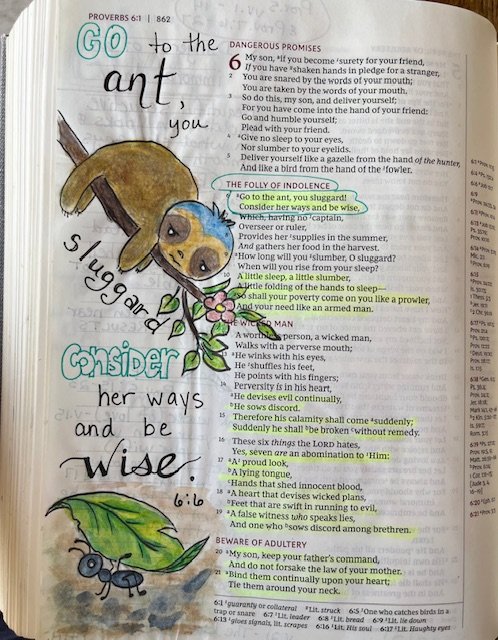 PROVERBS 6:1 | 862
GO to the
ant,
you
sluggard
Consider
her ways
and be
wise.
6:6
DANGEROUS PROMISES
6 My son, if you become surety for your friend,
If you have shaken hands in pledge for a stranger,
2 You are snared by the words of your mouth;
You are taken by the words of your mouth.
3 So do this, my son, and deliver yourself;
For you have come into the hand of your friend:
Go and humble yourself;
Plead with your friend.
4 Give no sleep to your eyes,
Nor slumber to your eyelids.
5 Deliver yourself like a gazelle from the hand of the hunter,
And like a bird from the hand of the fowler.
THE FOLLY OF INDOLENCE
Go to the ant, you sluggard!
Consider her ways and be wise,
Which, having no captain,
Overseer or ruler,
Provides her supplies in the summer,
And gathers her food in the harvest.
How long will you slumber, O sluggard?
When will you rise from your sleep?
A little sleep, a little slumber,
A little folding of the hands to sleep—
So shall your poverty come on you like a prowler,
And your need like an armed man.
WICKED MAN
A worthless person, a wicked man,
Walks with a perverse mouth;
He winks with his eyes,
He shuffles his feet,
He points with his fingers;
14 Perversity is in his heart,
He devises evil continually,
He sows discord.
15 Therefore his calamity shall come suddenly;
Suddenly he shall be broken without remedy.
16 These six things the LORD hates,
Yes, seven are an abomination to Him:
17 A proud look,
A lying tongue,
Hands that shed innocent blood,
18 A heart that devises wicked plans,
Feet that are swift in running to evil,
19 A false witness who speaks lies,
And one who sows discord among brethren.
BEWARE OF ADULTERY
20 My son, keep your father's command,
And do not forsake the law of your mother.
21 Bind them continually upon your heart;
Tie them around your neck.
6:1 guaranty or collateral Lit. struck 6:5 One who catches birds in a
trap or snare 6:7 Lit. leader 6:8 Lit. bread 6:9 Lit. lie down
6:13 gives signals, lit. scrapes 6:16 Lit. His soul 6:17 Lit. Haughty eyes